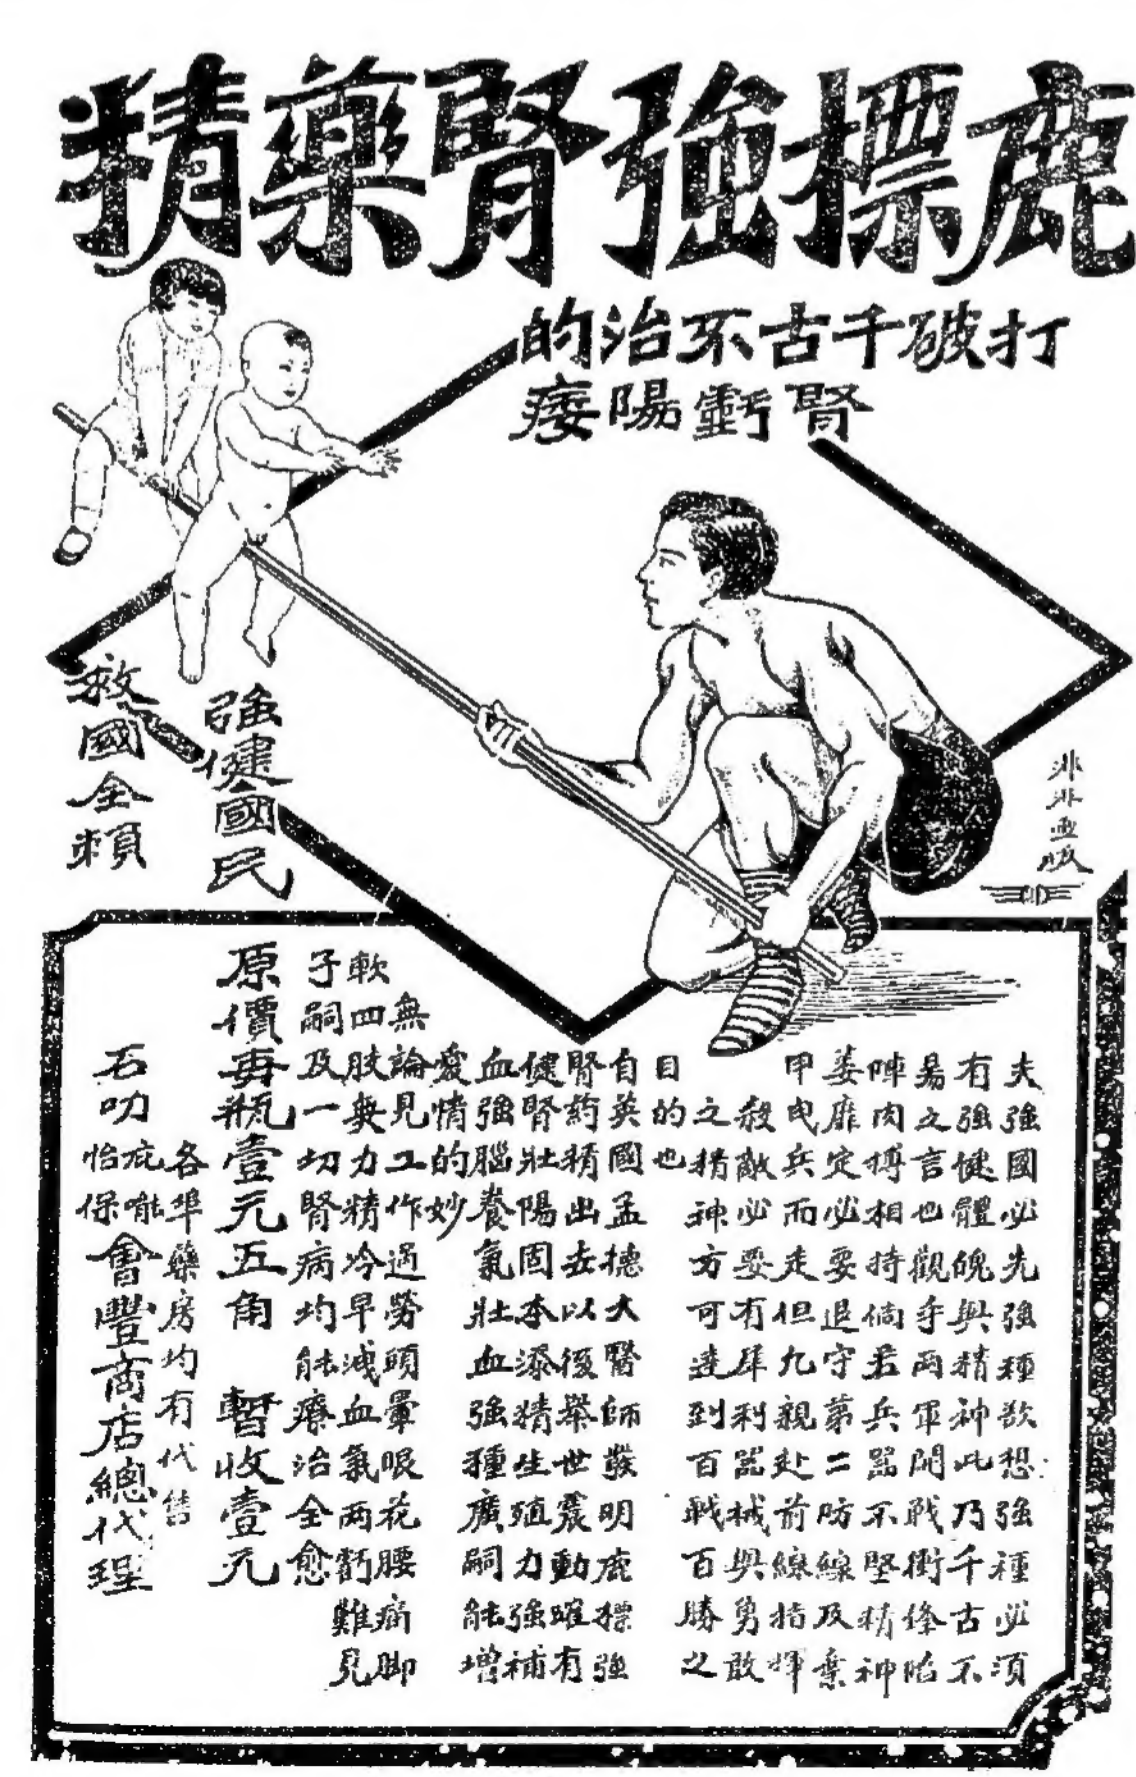 鹿標強腎藥精
打破千古不治的
腎虧陽痿
強健國民
救國全賴
非非畫版
夫強國必先強種欲想強種必須
有強健體魄與精神此乃千古不
易之言也觀乎兩軍開戰衝鋒陷
陣肉搏相持倘若兵器不堅精神
萎靡定必要退守第二防線及棄
甲曳兵而走但凡親赴前線指揮
殺敵必要有犀利器械與勇敢
之精神方可達到百戰百勝之
目的也
自英國孟德大醫師發明鹿標強
腎藥精出世以後舉世震動確有
健腎壯陽固本添精生殖力強補
血強腦養氣壯血強種廣嗣能增
愛情的妙
無論見工作過勞頭暈眼花腰痛腳
軟四肢無力精冷早洩血氣兩虧難見
子嗣及一切腎病均能療治全愈
原價每瓶壹元五角 暫收壹元
各埠藥房均有代售
石叻庇能怡保會豐商店總代理